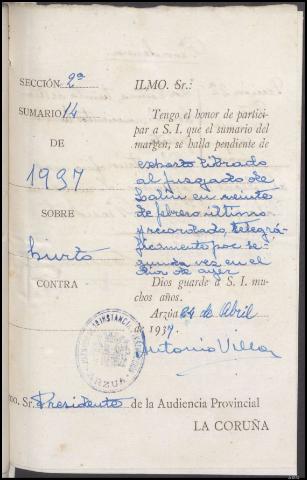 SECCIÓN 2ª
SUMARIO 14
DE
1937
SOBRE
hurto
CONTRA
ILMO. Sr.:
Tengo el honor de partici-
par a S. I. que el sumario del
margen, se halla pendiente de
exhorto librado
al juzgado de
Lalín en veinte
de febrero último
y recordado telegrá-
ficamente por se-
gunda vez en el
día de ayer
Dios guarde a S. I. mu-
chos años.
Arzúa 24 de Abril
de 1937.
Antonio Villar
INSTANCIA
ARZUA
mo. Sr. Presidente de la Audiencia Provincial
LA CORUÑA